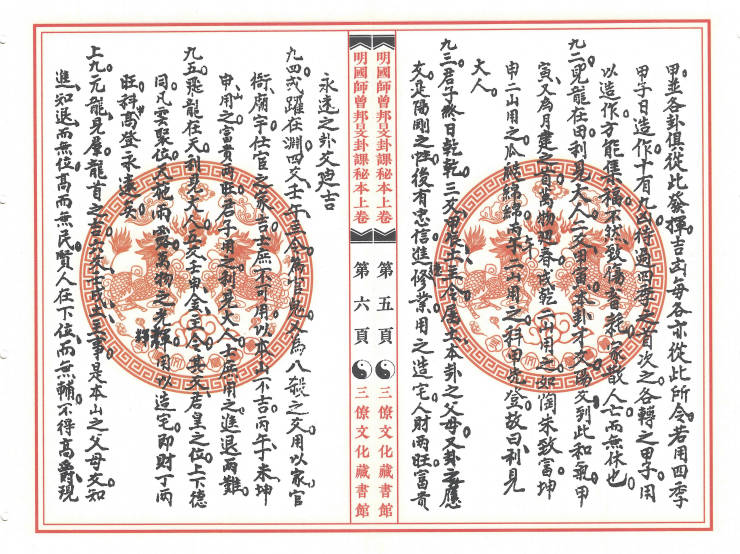 甲並各卦俱從此發揮吉凶每各亦從此所合若用四季
甲子日造作十有九凶待過四季之首次之各轉之甲子用
以造作方能集福不然致傷者乾家散人亡而無休也
九二見龍在田利見大人二爻甲寅本卦才爻陽爻到此和氣甲
寅又為月建之寅萬物迎春戌乾二山用之如陶朱致富坤
申二山用之瓜瓞綿綿丙午二山用之科甲先登故曰利見
大人
九三君子終日乾乾三爻甲辰土主令屬土本卦之父母又卦之應
爻是陽剛之性後有忠信進修業用之造宅人財兩旺富貴
明國師曾邦旻卦課秘本上卷
第五頁
三僚文化藏書館
明國師曾邦旻卦課秘本上卷
第六頁
三僚文化藏書館
永遠之卦爻迪吉
九四或躍在淵四爻壬午主令為官鬼又為八殺之爻用以家官
衙廟宇仕官之家吉士庶不可用以本山不吉丙午未坤
申山用之富貴兩旺君子用之利見大人士庶用之進退兩難
九五飛龍在天利見大人五爻壬申金主令其爻君皇之位上下德
同凡雲聚位天施雨露萬物之光輝用以造宅即財丁兩
旺科甲高登永遠矣
上九亢龍見羣龍首之吉六爻壬戌土主事是本山之父母爻知
進知退而無位高而無民賢人在下位而無輔不得高爵現